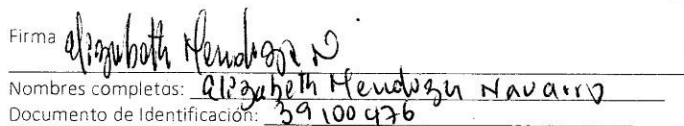 Firma Elizabeth Mendoza N
Nombres completos: Elizabeth Mendoza Navarro
Documento de Identificación: 39100476